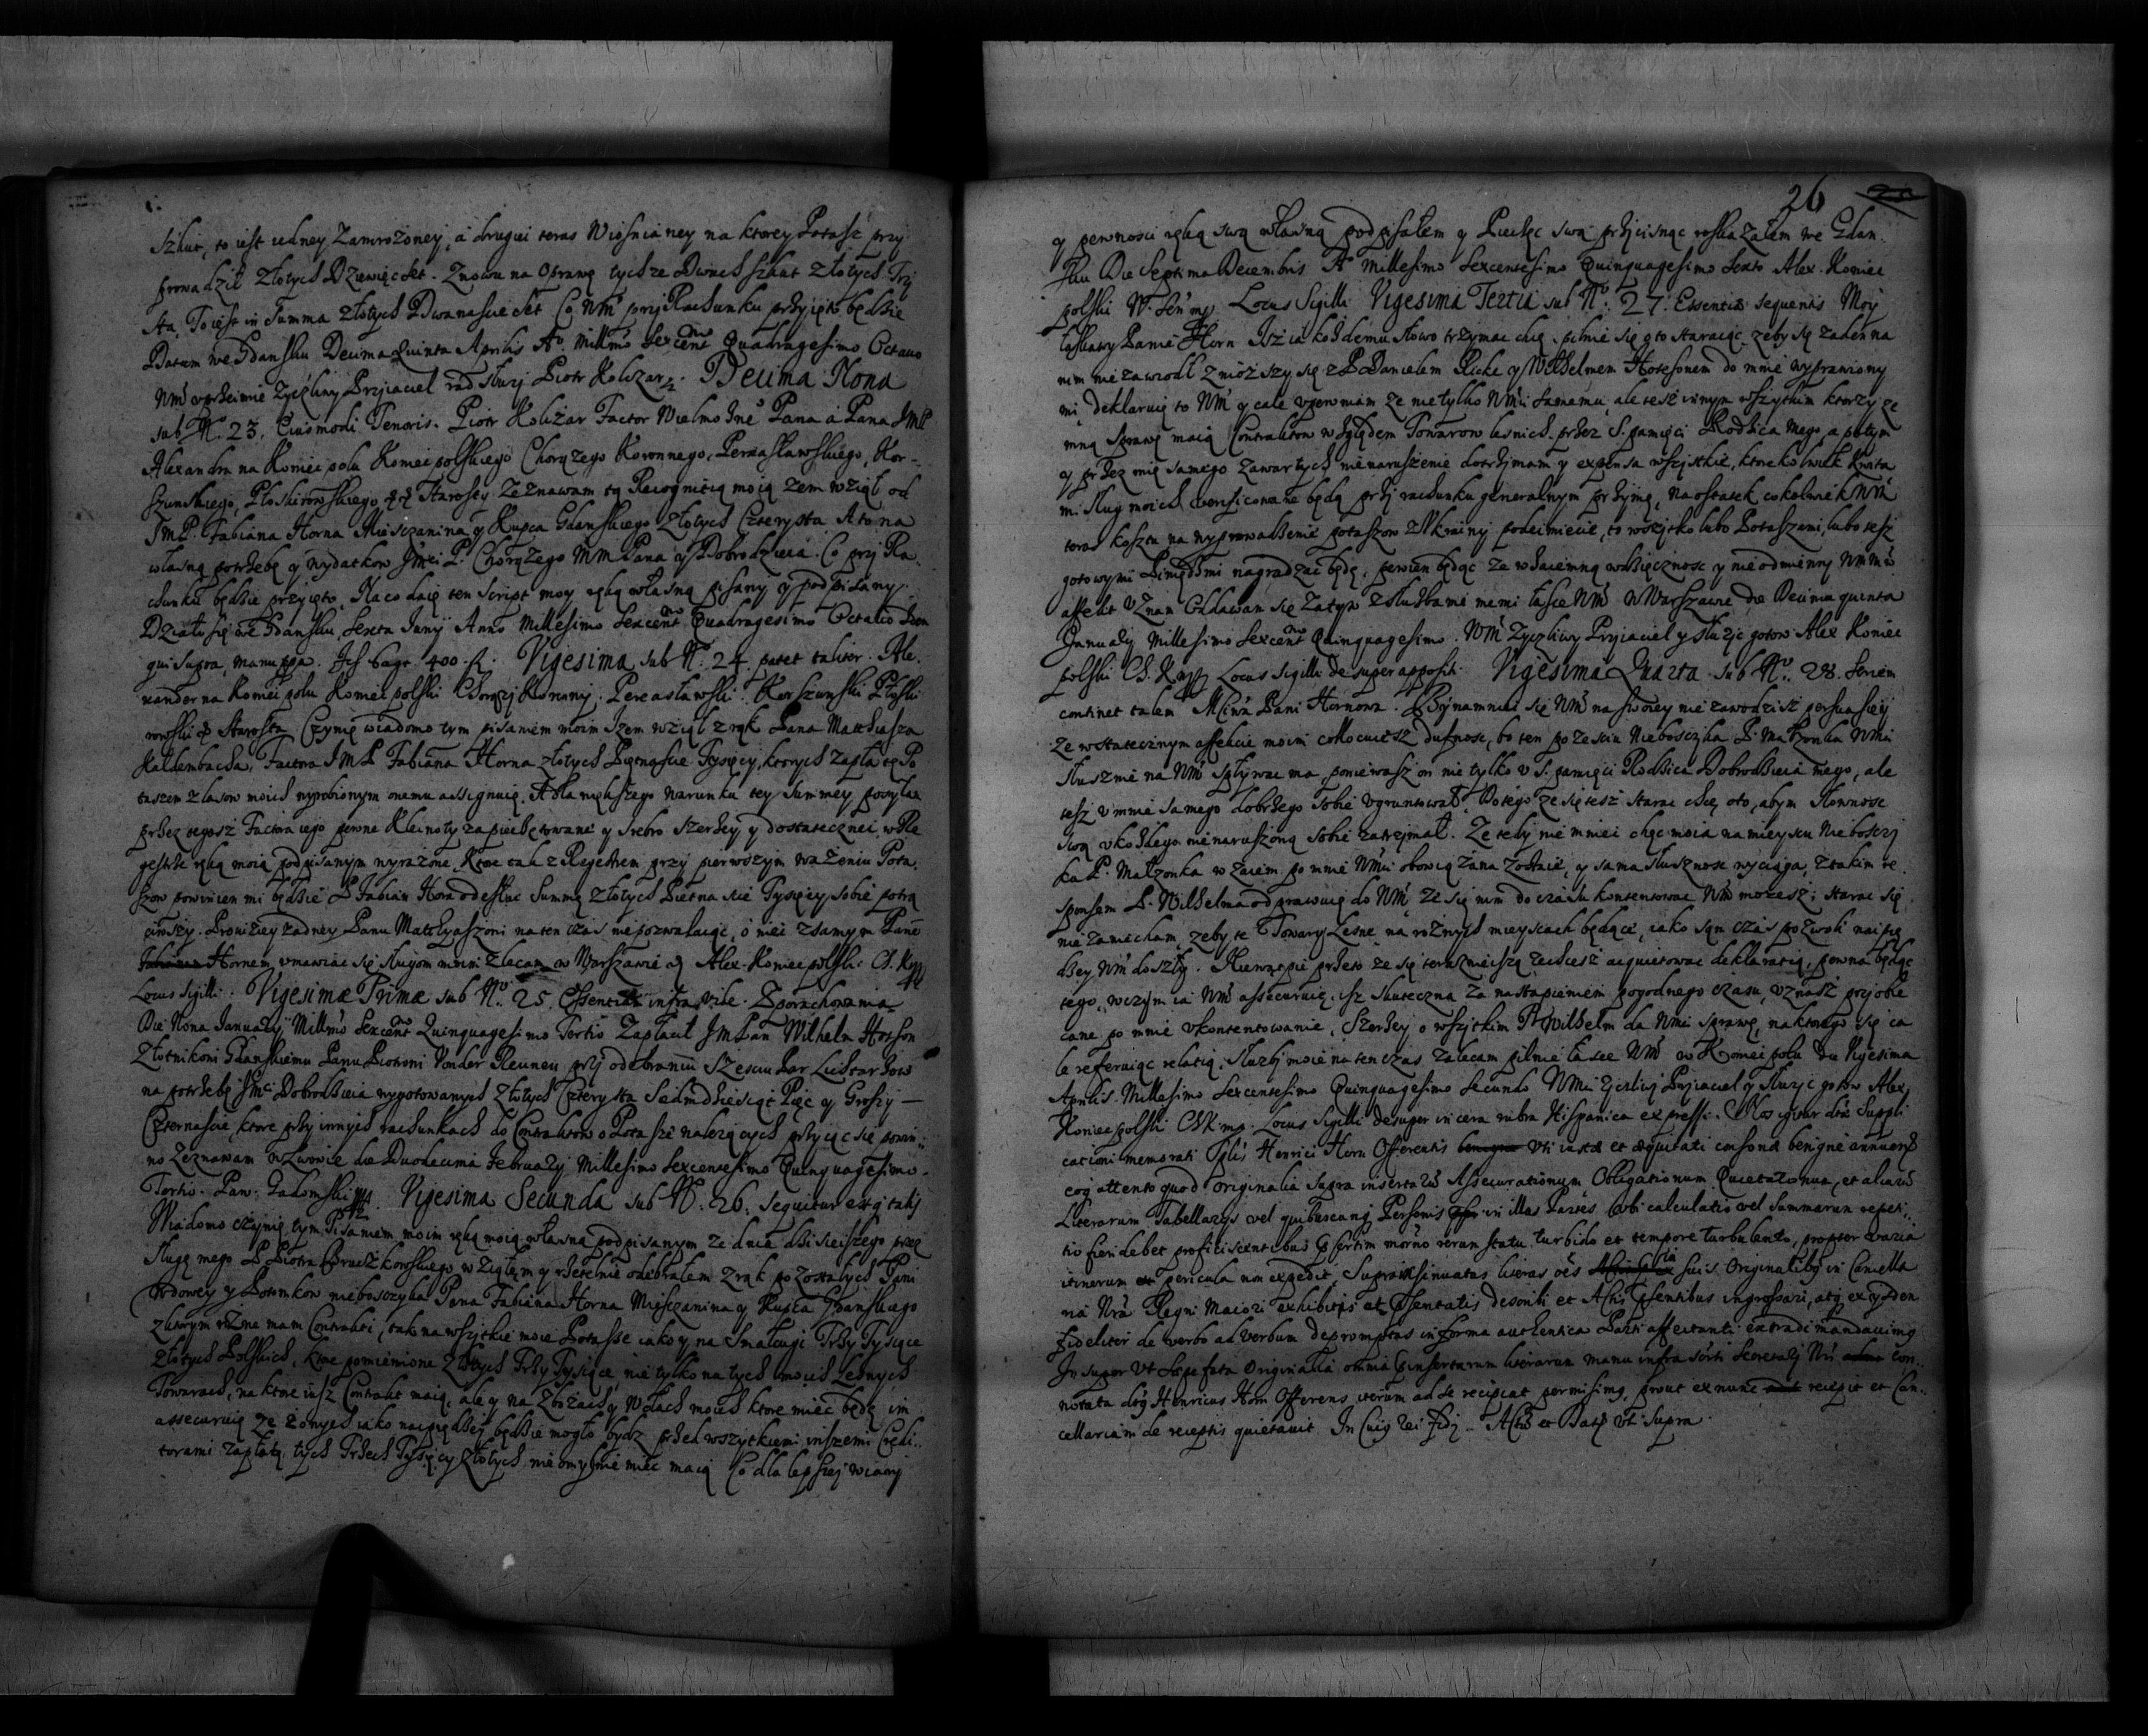 Szkut, to iest iedney Zamrożoney, á drugiei teras Wiosnianey na ktorey Potasz przy
prowadził Złotych Dziewięcset. Znowu na Oprawę tychze Dwuch szkut Złotych Trzy
sta, To iest in Summa złotych Dwanascie set Co WM przy Rachunku przyięto będzie
Datum we Gdansku Decima Quinta Aprilis Ao Millmo Sexcentmo Quadragesimo Octavo
WM uprzeimie Zyczliwy Przyiaciel rad słuzy Piotr Kolczar. Decima Nona
sub No. 23. Eiusmodi Tenoris. Piotr Koliżar Factor Wielmożne Pana á Pana JMP
Alexandra na Koniecpolu Koniecpolskiego Chorązego Koronnego, Pereasławskiego, Kor-
szunskiego, Płoskirowskiego Starosty Zeznawam tą Recognitią moią żem wziął od
JMP. Fabiana Horna Miesczanina y Kupca Gdanskiego Złotych Czterysta A to na
własną potrzebę y wydatkow JMci P. Chorązego MM Pana y Dobrodzieia. Co przy Ra-
chunku będzie przyięto. Na co daię ten Script moy ręką własną pisany y podpisany.
Działo się we Gdansku, Sexta Juny Anno Millesimo Sexcentmo Quadragesimo Octavo Idem
qui supra, manu ppa. 400 fl. Vigesima sub No. 24. patet taliter. Ale-
xander na Koniecpolu Koniecpolski Chorązy Koronny, Pereasławski Korszunski Płoski
rowski Starosta Czynię wiadomo tym pisaniem moim Izem wziął z rąk Pana Matthiasza
Kaldembacha, Factora JMP Fabiana Horna złotych Piętnascie Tysięcy, ktorych zapłatę Po
taszem z lasow moich wyrobionym onemu assignuię. A dla większego warunku tey Summey posyłam
przez tegosz Factora iego pewne Kleinoty zapieczętowane y Srebro szerzey y dostatecznei w Re
gestrze ręką moią podpisanym wyrażone, Ktore tak z Rejestrem przy pierwszym ważeniu Pota-
szow powinien mi będzie P Fabian Horn odesłac Summę Złotych Pietnascie Tysięcy sobie potrą
ciwszy. Prowizyey żadney Panu Matthyaszowi na ten czas nie pozwalaiąc, o niei z samym Panem
Hornem umawiac się sługom moim zlecam w Warszawie Alex. Koniecpolski Ch. K.
Locus Sigilli. Vigesimæ Primæ sub No. 25. Essentia infra vide. Zporachowania
Die Nona January Millmo Sexcentmo Quinquagesimo Tertio Zapłacił JmPan Wilhelm Hotson
Złotnikowi Gdanskiemu Panu Piotrowi Vonder Rennen przy odebraniu Szesciu Par Lichtarzow
na potrzebę JMci Dobrodzieia wygotowanych złotych Czterysta Siedmdziesiąt Pięc y Groszy —
Czternascie, ktore przy innych rachunkach do Contraktow o Potasze należących przyiąc się powin-
no Zeznawam w Lwowie die Duodecima February Millesimo Sexcentesimo Quinquagesimo
Tertio. Paw. Gadomski mp. Vigesima Secunda sub No. 26. sequitur estq talis
Wiadomo czynię tym Pisaniem moim ręką moią własną podpisanym że dnia dzisieiszego przez
Sługę mego P Piotra Bruszkowskiego wziąłem y rzetelnie odebrałem z rąk pozostałych Pani
Wdowey y Potomkow nieboszczyka Pana Fabiana Horna Mięsczanina y Kupca Gdanskiego
z ktorym rożne mam Contrakti, tak na wszytkie moie Potasze iako y na Smalcugi Trzy Tysiące
złotych Polskich, ktore pomienione złotych Trzy Tysiące nie tylko na tych moich Lesnych
Towarach, na ktore insz Contrakt maią, ale y na Zbożach y Wołach moich ktore miec będę im
assecuruię że z onych iako naiprędzey będzie mogło bydz przed wszytkiemi inszemi Credi-
torami zapłatę tych Trzech Tysięcy Złotych nieomylnie miec maią Co dla lepszey wiary
26
y pewnosci ręką swą własną podpisałem y Pieczęc swą przycisnąc roskazałem we Gdan-
sku Die Septima Decembris Ao Millesimo Sexcentesimo Quinquagesimo Sexto Alex. Koniec
polski W. Sen mp. Locus Sigilli Vigesima Tertia sub No. 27. Essentia sequenis Moy
łaskawy Panie Horn Iż ia każdemu słowo trzymac chcę, pilnie się o to staraiąc, zeby się żaden na
nim nie zawiodł Znioższy się z P Danielem Ricke y Wilhelmem Hotesonem do mnie wyprawiony
mi deklaruię to WM y cale upewniam że nie tylko WMci samemu, ale tesz innym wszytkim ktorzy ze
mną sprawę maią Contraktow względem Towarow lesnich, przez S. pamięci Rodzica mego, a potym
y przez mię samego zawartych nienaruszenie dotrzymam y expensa wszystkie, ktorekolwiek Kwita
mi sług moich verificowane będą przy rachunku generalnym przyimę, Na ostatek cokolwiek WM
teras kosztu na wyprowadzenie potaszow z Ukrainy podeimiecie, to wszytko lubo Potaszami, lubo tesz
gotowymi Pieniądzmi nagradzac będę, pewien będąc ze wzaiemną wdzięcznosc y nieodmienny WMM
affekt uznam Oddawam się zatym z słuzbami memi łasce WM W Warszawie die Decima quinta
January Millesimo Sexcentmo Quinquagesimo. WM Zyczliwy Przyiaciel y słuzyc gotow Alex Koniec
polski Ch. K. mp. Locus Sigilli desuper appositi. Vigesima Quarta sub No. 28. Seriem
continet talem MCiwa Pani Hornowa. Bynamniei się WM na swoiey nie zawodzisz persuasiey
że w statecznym affekcie moim collocuiesz dufnosc, bo ten po zesciu Nieboszczyka P. Małzonka WMci
słusznie na WM spływac ma, poniewasz on nie tylko u S. pamięci Rodzica Dobrodzieia mego, ale
tesz u mnie samego dobrzego sobie ugruntował. Do tego że się tesz starac chcę o to, abym słownosc
swą u każdego nienaruszoną sobie zatrzymał. Ze tedy nie mniei chęc moia na mieyscu Nieboszczy
ka P. Małżonka wzaiem po mnie WMci obowiązana zostaie, y sama słusznosc wyciąga, z takim re-
sponsem P. Wilhelma odprawuię do WM, że się nim do czasu kontentowac WM możesz; starac się
nie zaniecham, zeby te Towary Lesne na rożnych mieyscach będące, iako sąm czas pozwoli naiprę
dzey WM doszły. Niewątpię przeto że się teraznieiszą zechcesz acquietowac deklaratią, pewna będąc
tego, w czym ia WM assecuruię, isz skuteczna za nastąpieniem pogodnego czasu, uznasz przyobie
cane po mnie ukontentowanie. Szerzey o wszytkim P Wilhelm da WMci sprawę, na ktorego się ca
le referuiąc relatią, słuzby moie na ten czas zalecam pilnie łasce WM w Koniecpolu die Vigesima
Aprilis Millesimo Sexcentesimo Quinquagesimo Secundo WMci życzliwy Przyiaciel y słuzyc gotow Alex
Koniecpolski ChK mp. Locus Sigilli desuper in cera rubra Hispanica expressi. Nos igitur dtæ Suppli
cationi memorati Henrici Horn Offerentis uti iustæ et æquitati consona benigne annuen
attento quod originalia supra insertarum Assecurationum Obligationum Quietationum, et aliarum
Literarum Tabellarys vel quibuscunq Personis in illas Partes ubi calculatio vel summarum repeti-
tio fieri debet proficiscentibus psertim moderno rerum statu turbido et tempore turbulento, propter varia
itinerum pericula non expedit, Suprainsinuatas literas oes suis Originalibq in Cancella
ria Nra Regni Maiori exhibitis et psentatis describi et Actis psentibus ingrossari, atq ex ysdem
fideliter de verbo ad verbum depromptas in forma authentica Parti affectanti extradi mandavimq
In super ut saepefata Originalia omnia insertarum literarum manu infra scripti Secretary Nri con-
notata Henricus Horn Offerens iterum ad se recipiat permisimq, prout ex nunc recepit et Can-
cellariam de receptis quietavit. In Cuiq rei fidem. Actum et Datum ut Supra.